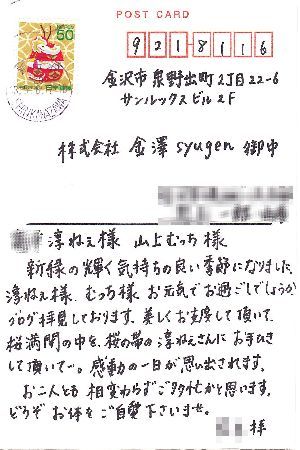 POST CARD
50
9218116
金沢市泉野出町2丁目22-6
サンルックスビル2F
株式会社 金澤syugen 御中
淳ねぇ様 山上むっち様
新緑の輝く気持ちの良い季節になりました。
淳ねぇ様、むっち様、お元気でお過ごしでしょうか
ブログ拝見しております。美しくお支度して頂いて、
桜満開の中を、桜の帯の淳ねぇさんにお手ひき
して頂いて…。感動の一日が思い出されます。
お二人とも 相変わらずご多忙かと思います。
どうぞ お体をご自愛下さいませ。
様